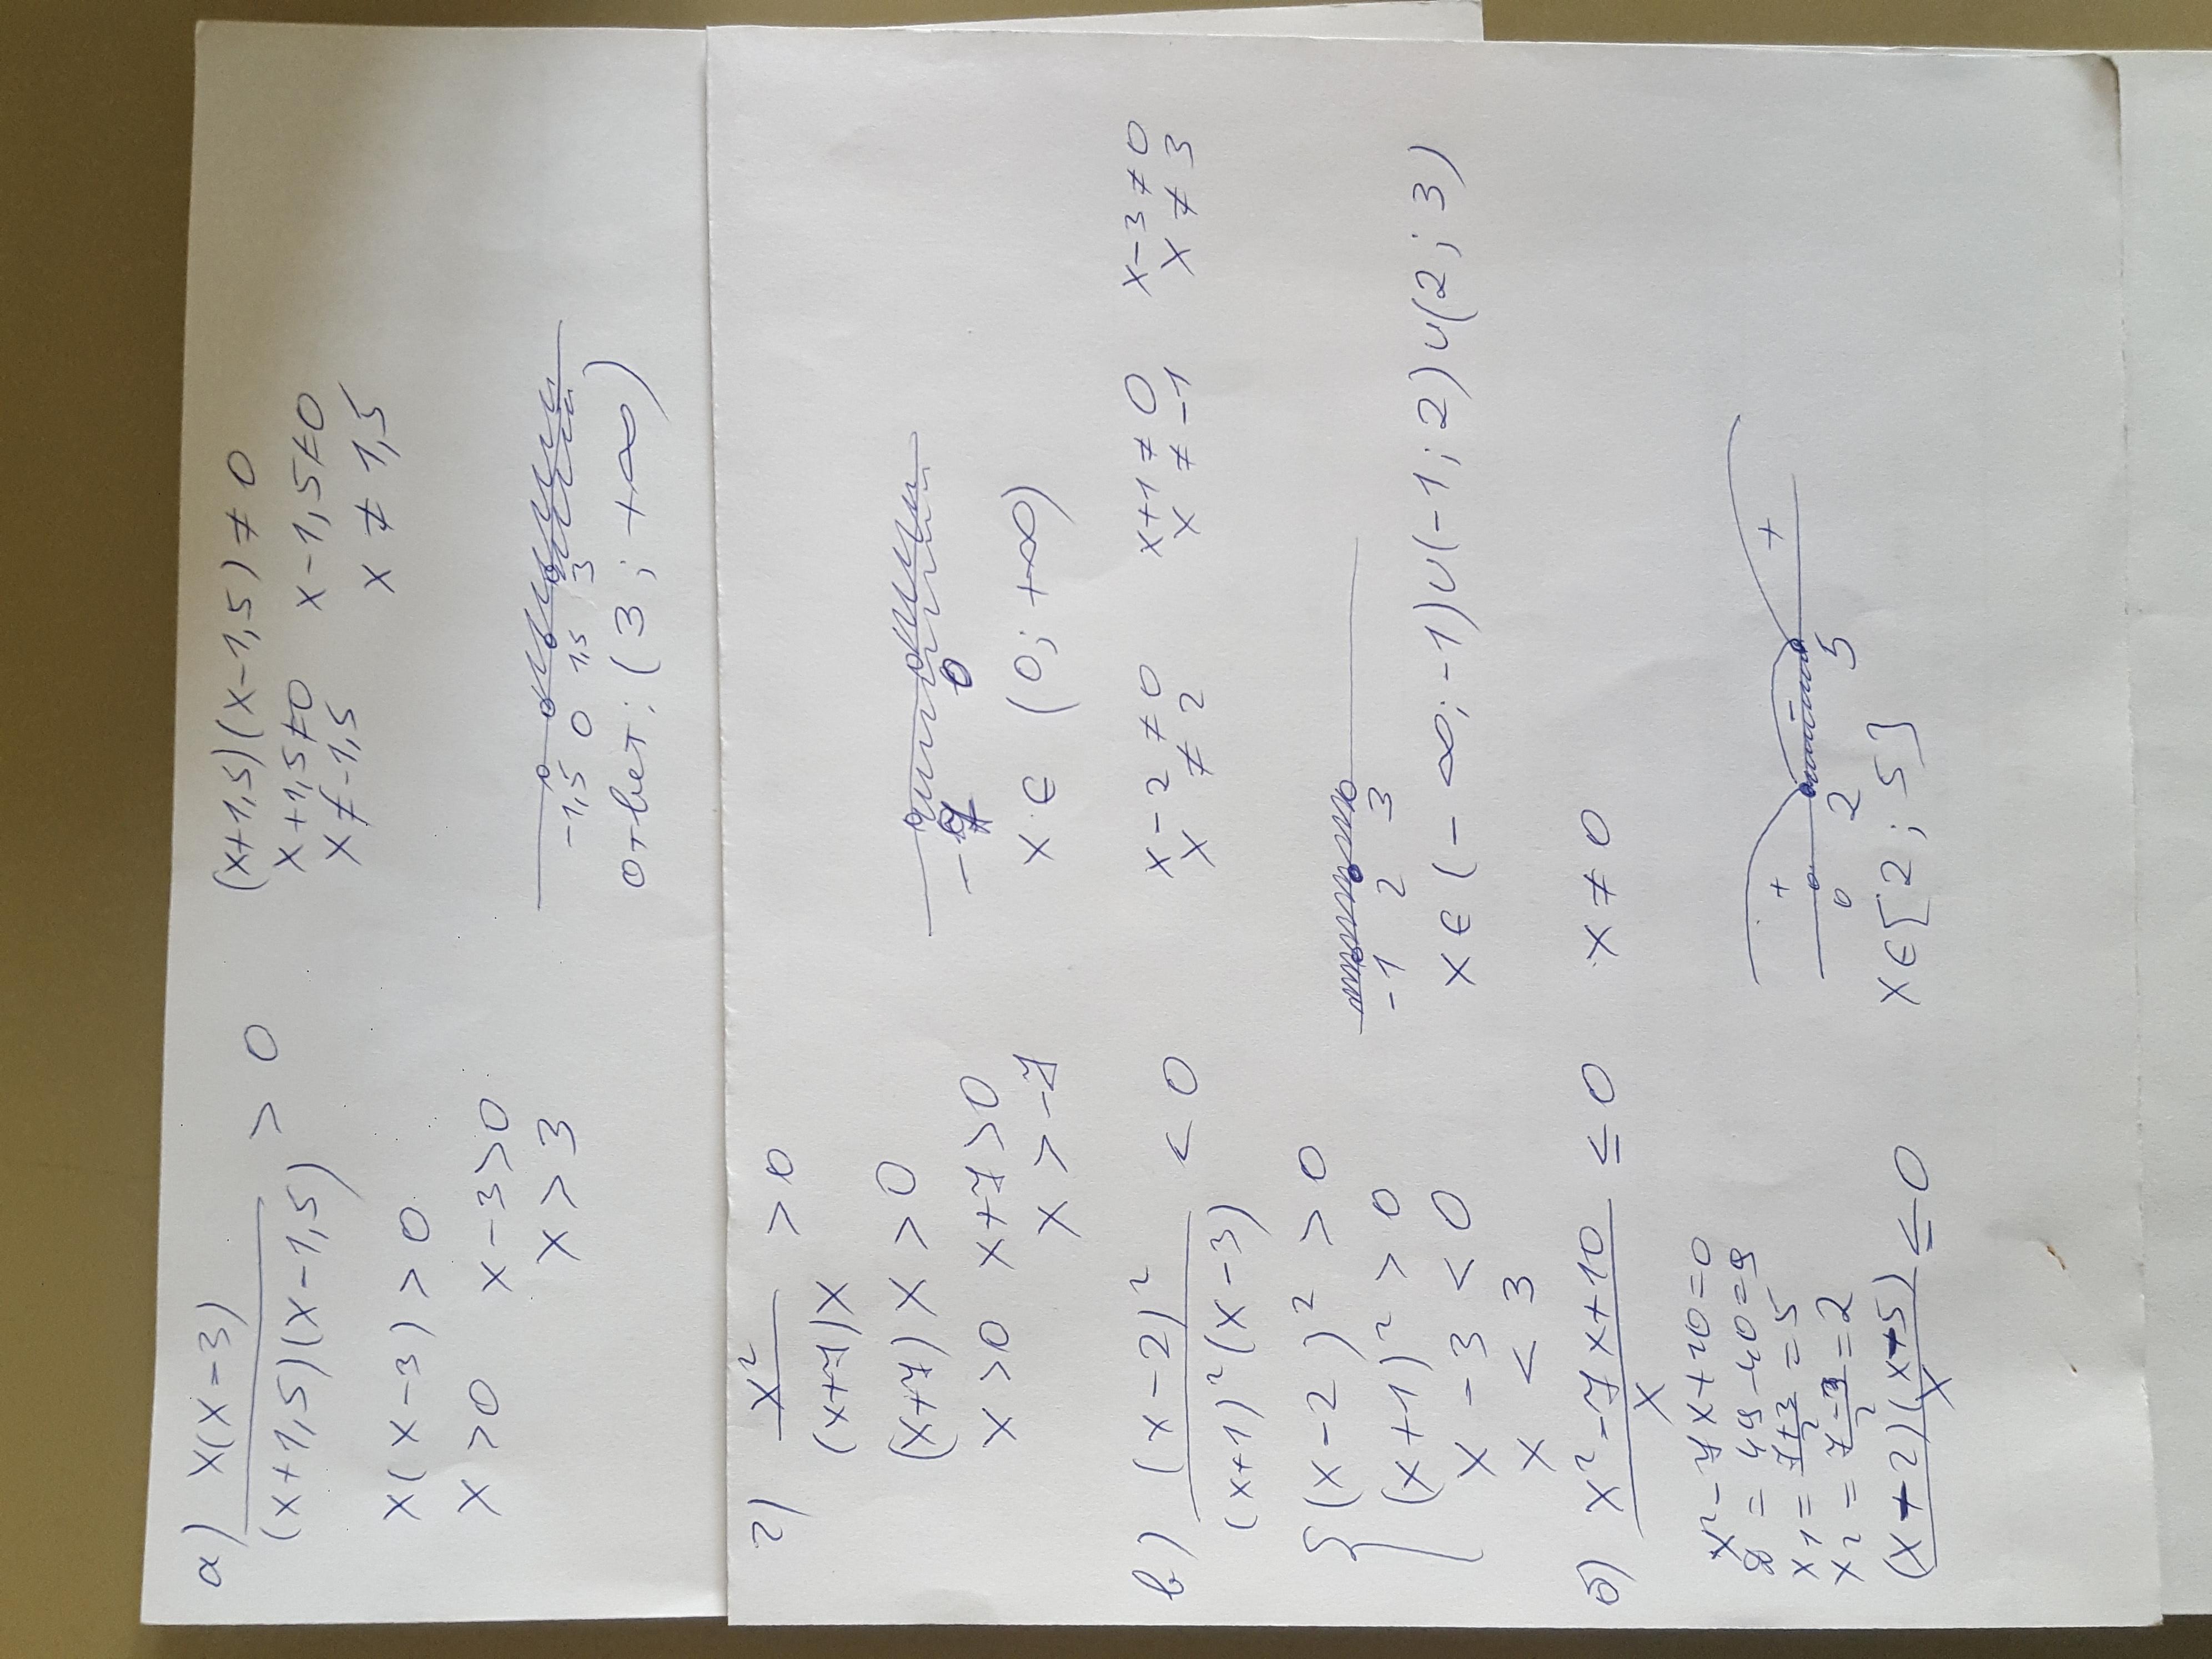 а) x(x-3)
(x+1,5)(x-1,5) > 0
(x+1,5)(x-1,5) ≠ 0
x+1,5≠0 x-1,5≠0
x ≠ -1,5 x ≠ 1,5
x(x-3) > 0
x > 0 x-3>0
x > 3
-1,5 0 1,5 3
ответ: (3; +∞)
г) x²
(x+7)x > 0
(x+7) x > 0
x > 0 x+7>0
x > -7
0
x ∈ (0; +∞)
в) (x-2)²
(x+1)²(x-3) < 0
x-2 ≠ 0 x+1 ≠ 0 x-3 ≠ 0
x ≠ 2 x ≠ -1 x ≠ 3
{ (x-2)² > 0
(x+1)² > 0
x-3 < 0
x < 3
-1 2 3
x ∈ (-∞; -1) ∪ (-1; 2) ∪ (2; 3)
б) x²-7x+10
x ≤ 0 x ≠ 0
x²-7x+10=0
D = 49-40=9
x1 = 7+3/2 = 5
x2 = 7-3/2 = 2
(x+2)(x+5)
x ≤ 0
+ - +
0 2 5
x ∈ [2; 5]